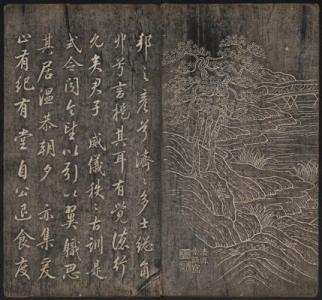 邦之彥兮濟〻多士總角
丱兮言提其耳有覺德行
允矣君子威儀秩〻古訓是
式令聞令望以引以翼職思
其居溫恭朝夕亦集爰
止有紀有堂自公退食度